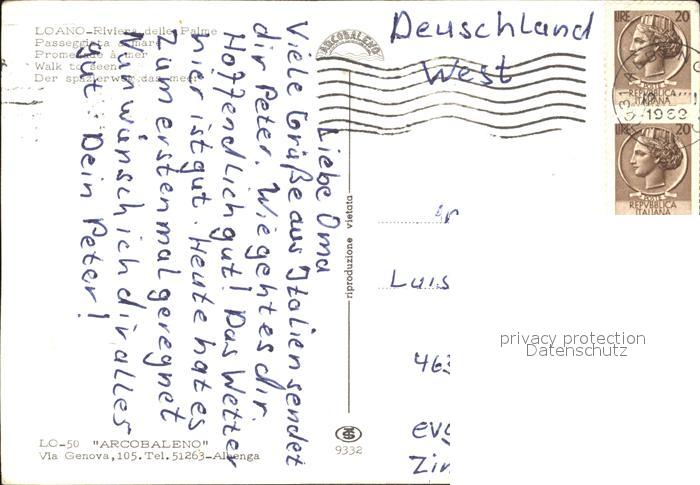 LOANO-Riviera delle Palme
Passeggiata a mare
Promenade à mer
Walk to seen
Der spazierweg das meer
Liebe Oma
Viele Grüße aus Italien sendet
dir Peter. Wie geht es dir
Hoffendlich gut! Das Wetter
hier ist gut. Heute hat es
zum erstenmal geregnet
Nun wünsch ich dir alles
gut: Dein Peter!
LO-50 "ARCOBALENO"
Via Genova,105.Tel.51263-Albenga
ARCOBALENO
riproduzione vietata
9332
Deuschland
West
LIRE 20
POSTE
REPVBBLICA
ITALIANA
1962
LIRE 20
POSTE
REPVBBLICA
ITALIANA
Luis
463
privacy protection
Datenschutz